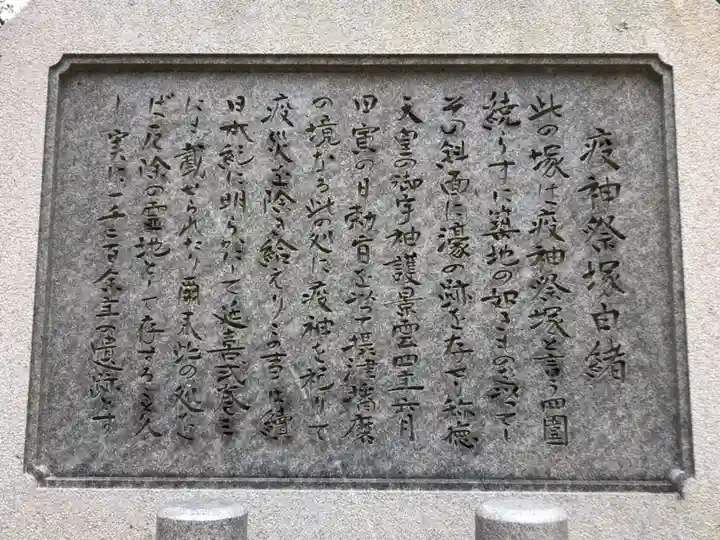 疫神祭塚由緒
此の塚は疫神祭塚と言う四囲
続らすに築地の如きもの在て
その斜面に濠の跡を存せり称徳
天皇の御宇神護景雲四年六月
甲寅の日勅旨を以て摂津播磨
の境なる此の処に疫神を祀りて
疫災を除き給えりこの事は続
日本紀に明らかにして延喜式巻三
にも載せられたり爾来此の処を
ば厄除の霊地として存する事久
し実に一千二百余年の遺跡とす